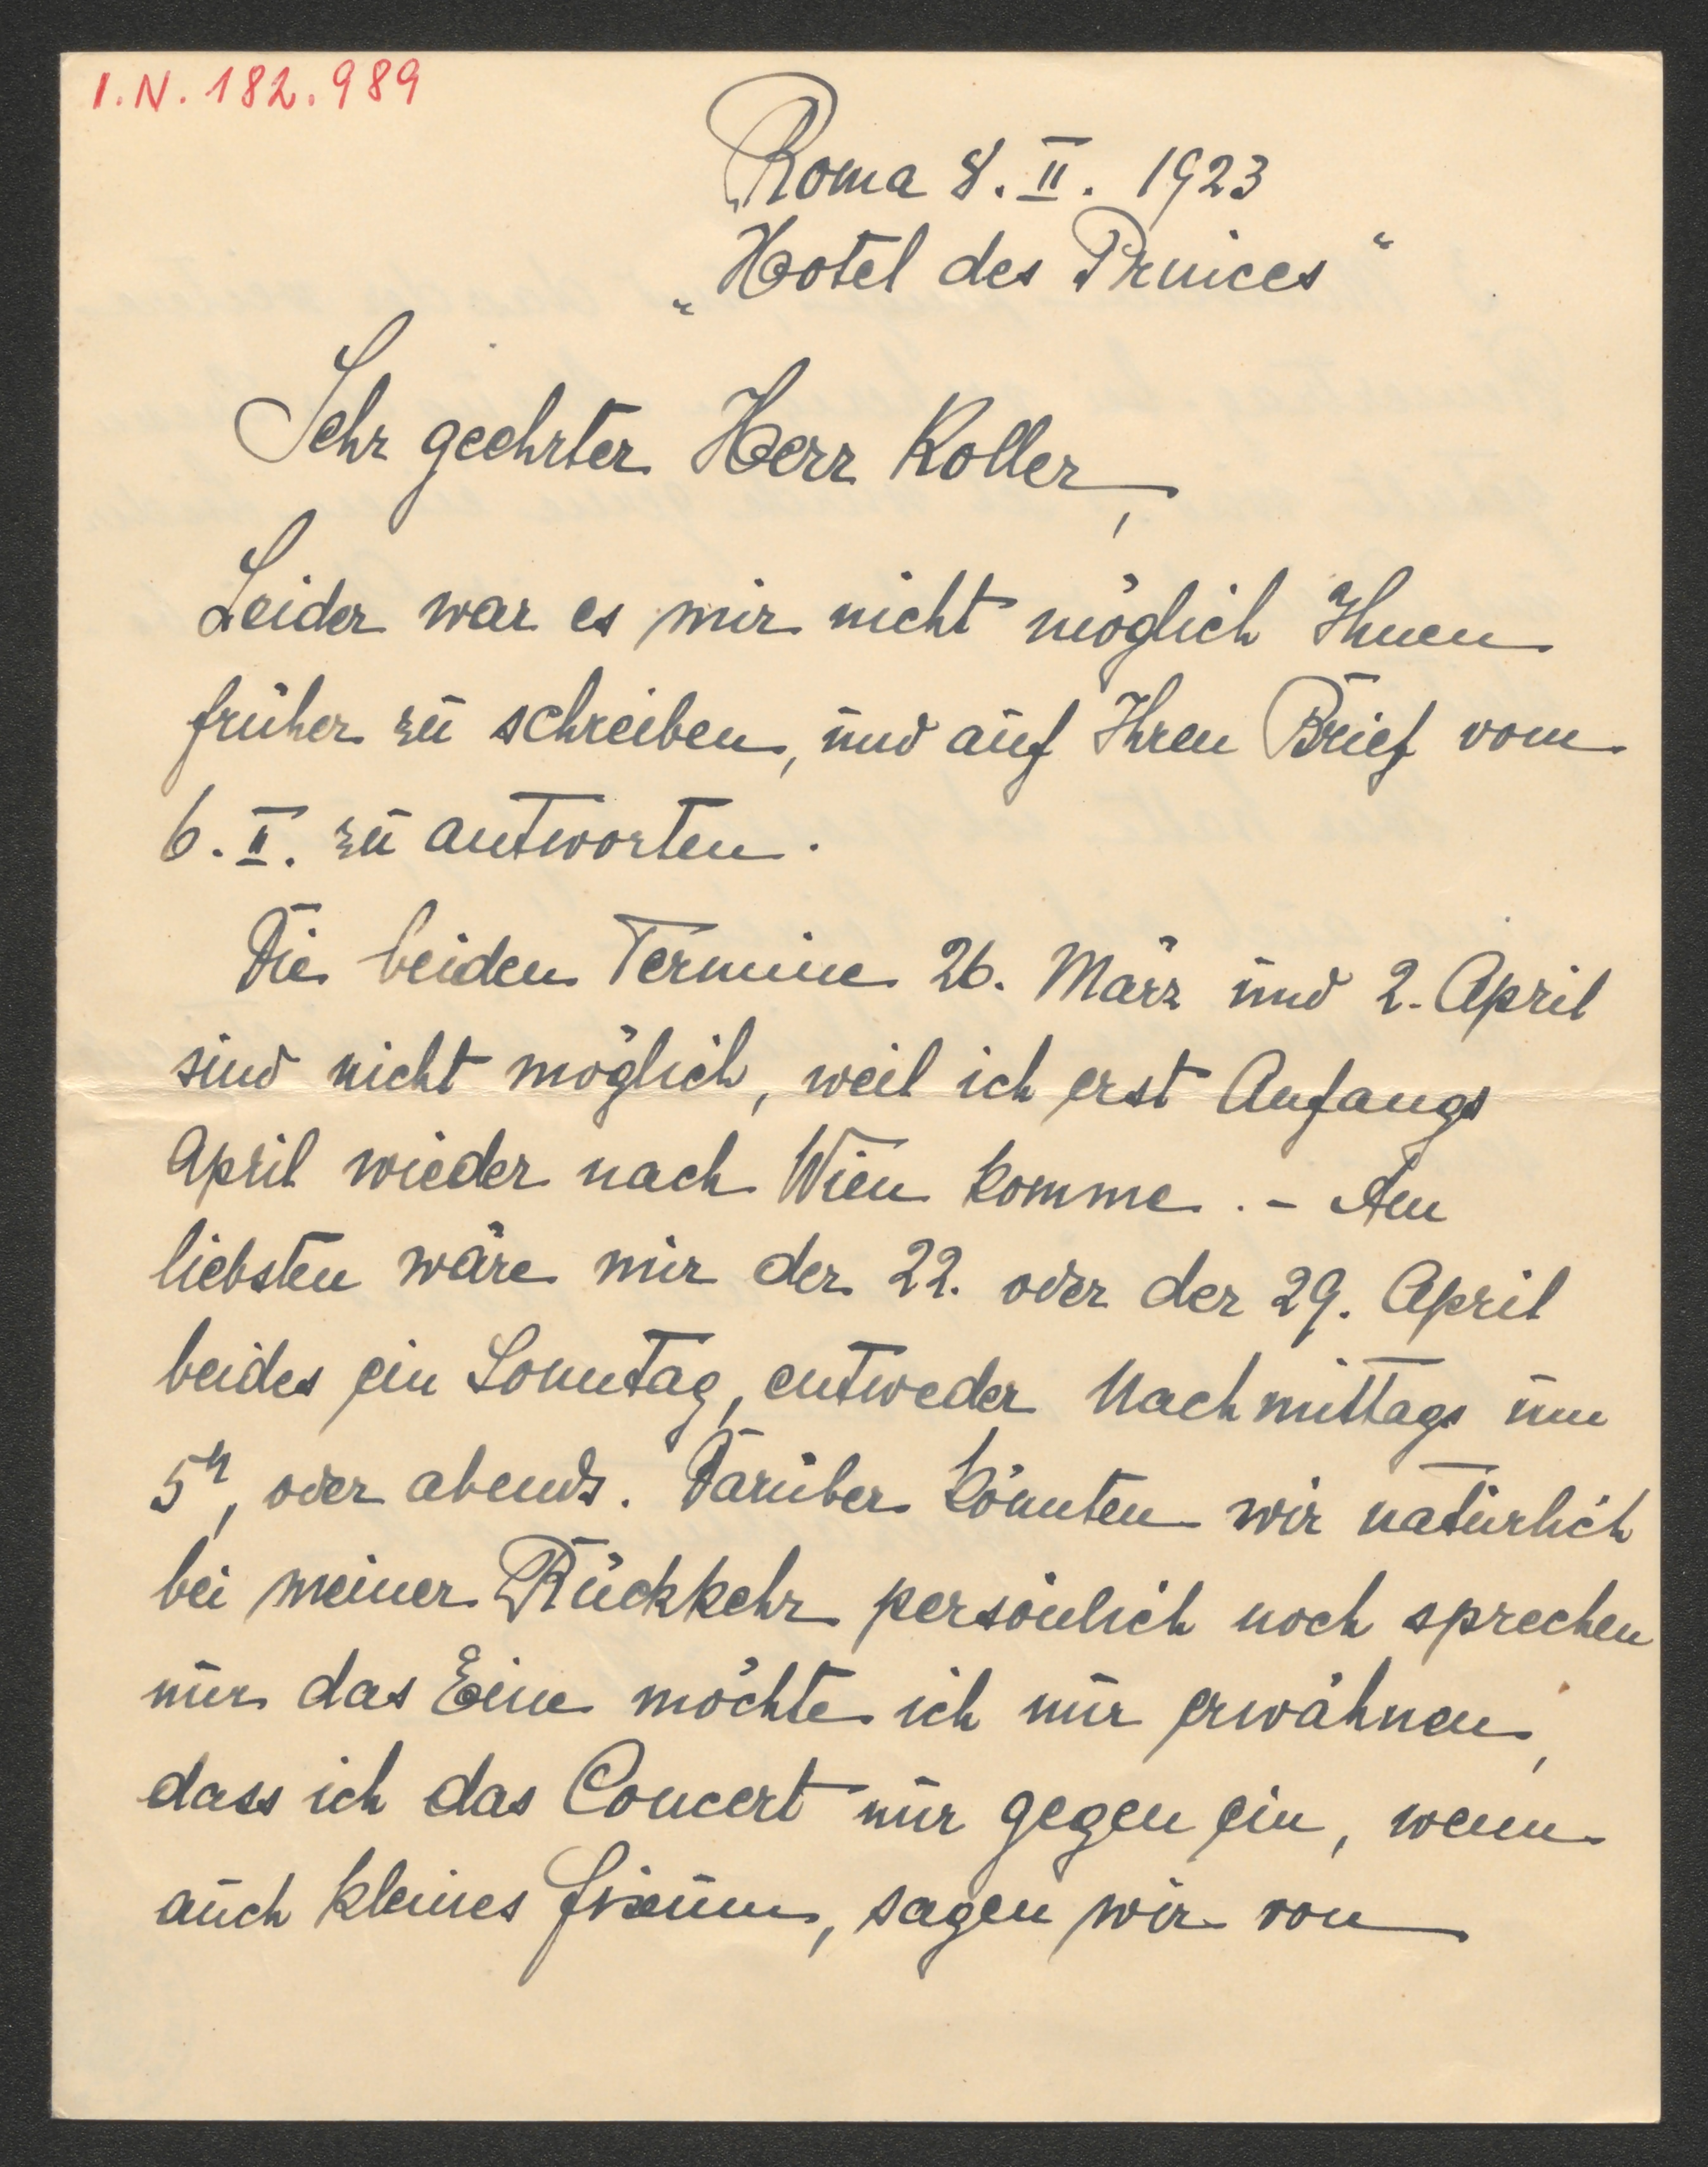 I.N. 182.989
Roma 8. II. 1923
„Hotel des Princes“
Sehr geehrter Herr Koller,
Leider war es mir nicht möglich Ihnen
früher zu schreiben, und auf Ihren Brief vom
6. II. zu antworten.
Die beiden Termine 26. März und 2. April
sind nicht möglich, weil ich erst Anfangs
April wieder nach Wien komme. – Am
liebsten wäre mir der 22. oder der 29. April
beides ein Sonntag, entweder Nachmittags um
5h, oder abends. Darüber könnten wir natürlich
bei meiner Rückkehr persönlich noch sprechen
nur das Eine möchte ich nur erwähnen,
dass ich das Concert nur gegen ein, wenn
auch kleines fixum, sagen wir von